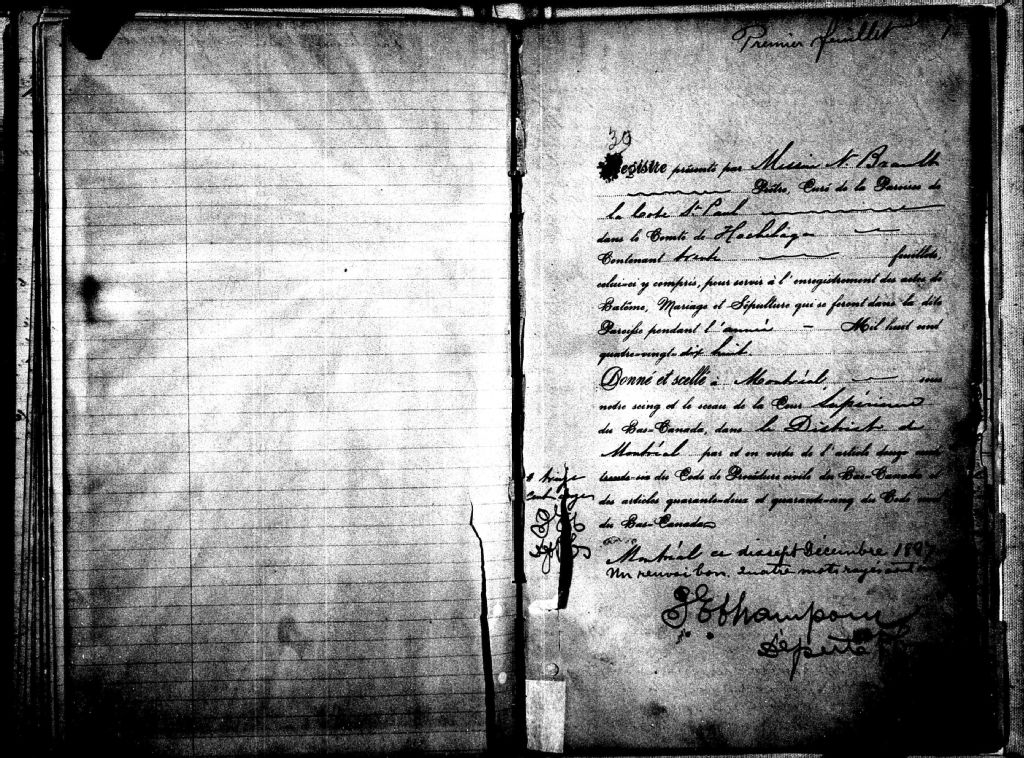 Premier feuillet
39
Registre présenté par Messire N. Brault
Prêtre, Curé de la Paroisse de
la Cote St Paul
dans le Comté de Hochelaga
Contenant trente feuillets,
celui-ci y compris, pour servir à l'enregistrement des actes de
Batême, Mariage et Sépulture qui se feront dans la dite
Paroisse pendant l'année Mil huit cent
quatre-vingt-dix huit.
Donné et scellé à Montréal, sous
notre seing et le sceau de la Cour Supérieure
du Bas-Canada, dans le District de
Montréal par et en vertu de l'article douze cent
trente-six du Code de Procédure civile du Bas-Canada et
des articles quarante-deux et quarante-cinq du Code civil
du Bas-Canada
Montréal ce dixsept Décembre 1897
Un renvoi bon. Quatre mots rayés sont
Député